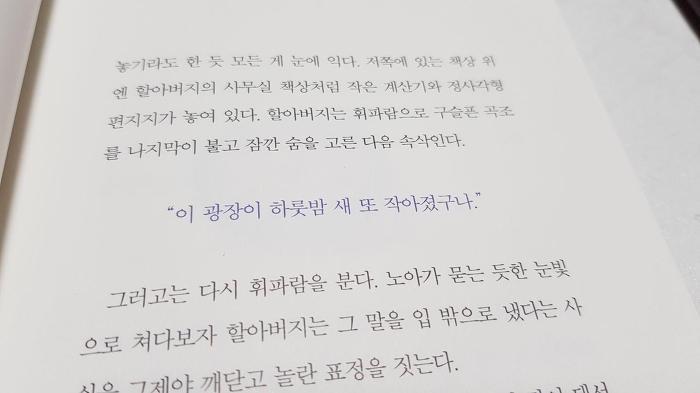 놓기라도 한 듯 모든 게 눈에 익다. 저쪽에 있는 책상 위
엔 할아버지의 사무실 책상처럼 작은 계산기와 정사각형
편지지가 놓여 있다. 할아버지는 휘파람으로 구슬픈 곡조
를 나지막이 불고 잠깐 숨을 고른 다음 속삭인다.
“이 광장이 하룻밤 새 또 작아졌구나.”
그러고는 다시 휘파람을 분다. 노아가 묻는 듯한 눈빛
으로 쳐다보자 할아버지는 그 말을 입 밖으로 냈다는 사
실을 그제야 깨닫고 놀란 표정을 짓는다.